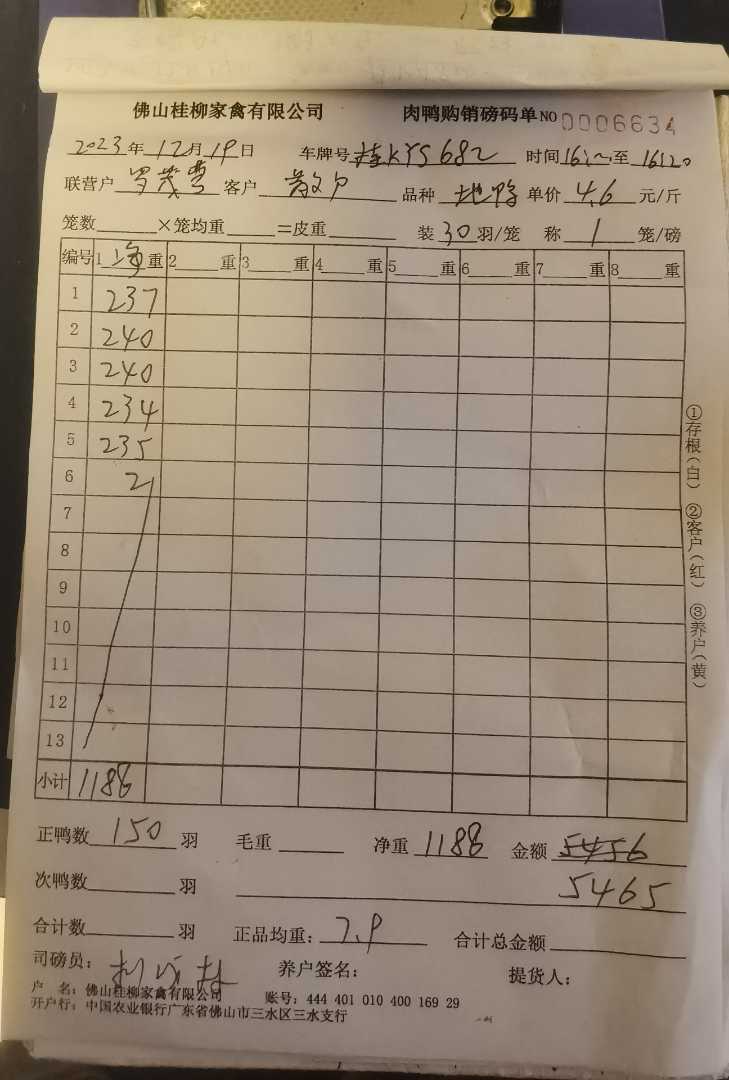 佛山桂柳家禽有限公司 肉鸭购销磅码单 NO 0006634
2023年12月19日 车牌号桂KYS682 时间 至 16:20
联营户 罗茂 客户 散户 品种 地鸭 单价 4.6 元/斤
笼数 ×笼均重 =皮重 装30羽/笼 称 1 笼/磅
编号 1 净 重 2 重 3 重 4 重 5 重 6 重 7 重 8 重
1 237
2 240
3 240
4 234
5 235
6 2
7
8
9
10
11
12
13
小计 1188
正鸭数 150 羽 毛重 净重 1188 金额 5456
次鸭数 羽 5465
合计数 羽 正品均重: 7.9 合计总金额
司磅员: 养户签名: 提货人:
户 名: 佛山桂柳家禽有限公司 账号: 444 401 010 400 169 29
开户行: 中国农业银行广东省佛山市三水区三水支行
①存根(白) ②客户(红) ③养户(黄)